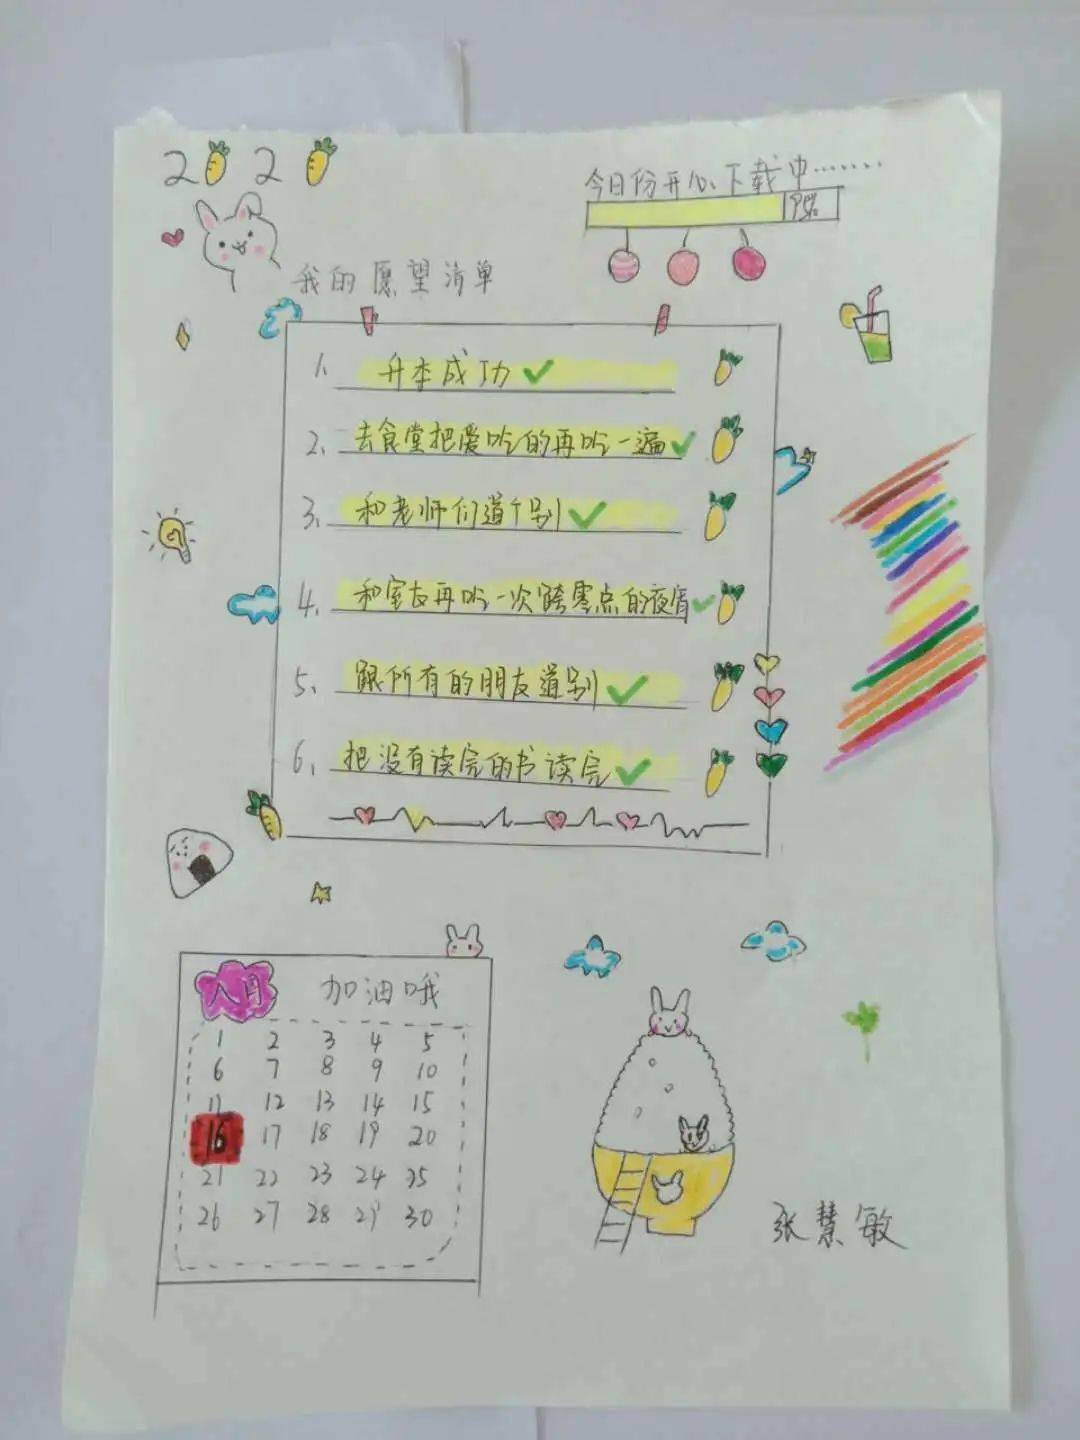 2020
今日份开心下载中.......
我的愿望清单
1、升本成功
2、去食堂把爱吃的再吃一遍
3、和老师们道个别
4、和室友再吃一次跨零点的夜宵
5、跟所有的朋友道别
6、把没有读完的书读完
八月 加油哦
1 2 3 4 5
6 7 8 9 10
11 12 13 14 15
16 17 18 19 20
21 22 23 24 25
26 27 28 29 30
张慧敏